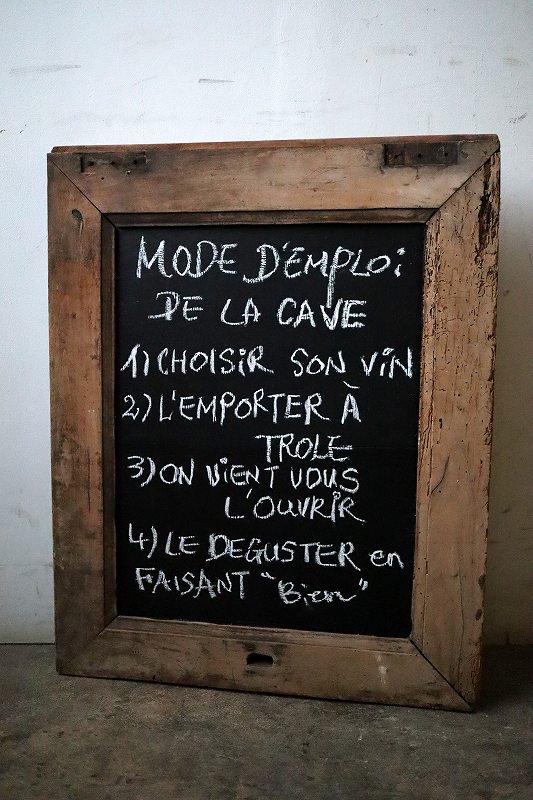 MODE D'EMPLOI
DE LA CAVE
1) CHOISIR SON VIN
2) L'EMPORTER À
TROLE
3) ON VIENT VOUS
L'OUVRIR
4) LE DEGUSTER en
FAISANT "Bien"